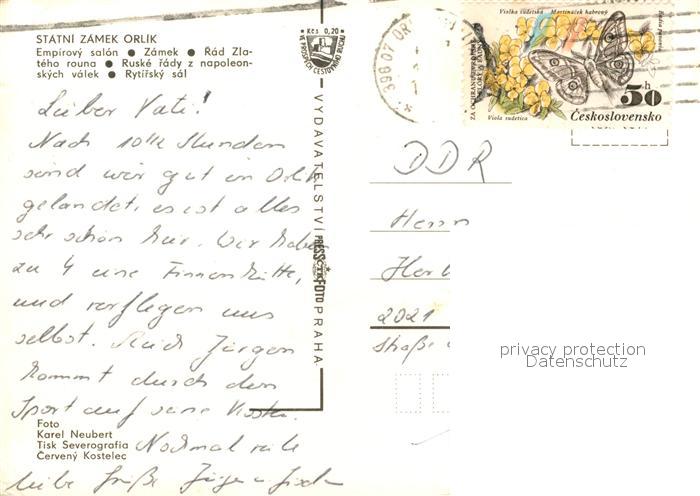 STÁTNÍ ZÁMEK ORLÍK
Empírový salón ● Zámek ● Řád Zla-
tého rouna ● Ruské řády z napoleon-
ských válek ● Rytířský sál
Kčs 0,20
VE PROSPĚCH CESTOVNÍHO RUCHU
398 07 OR
Violka sudetská Martináček habrový
Viola sudetica
50 h
Československo
Lieber Vati!
Nach 10½ Stunden
sind wir gut in Orlik
gelandet, es ist alles
sehr schön hier. Wir haben
zu 4 eine Finnenhütte,
und verpflegen uns
selbst. Auch Jürgen
kommt durch den
Sport auf seine Kosten.
Nochmal viele
liebe Grüße Jürgen
VYDAVATELSTVÍ PRESSFOTO PRAHA
DDR
Herrn
2021
Straße
privacy protection
Datenschutz
Foto
Karel Neubert
Tisk Severografia
Červený Kostelec